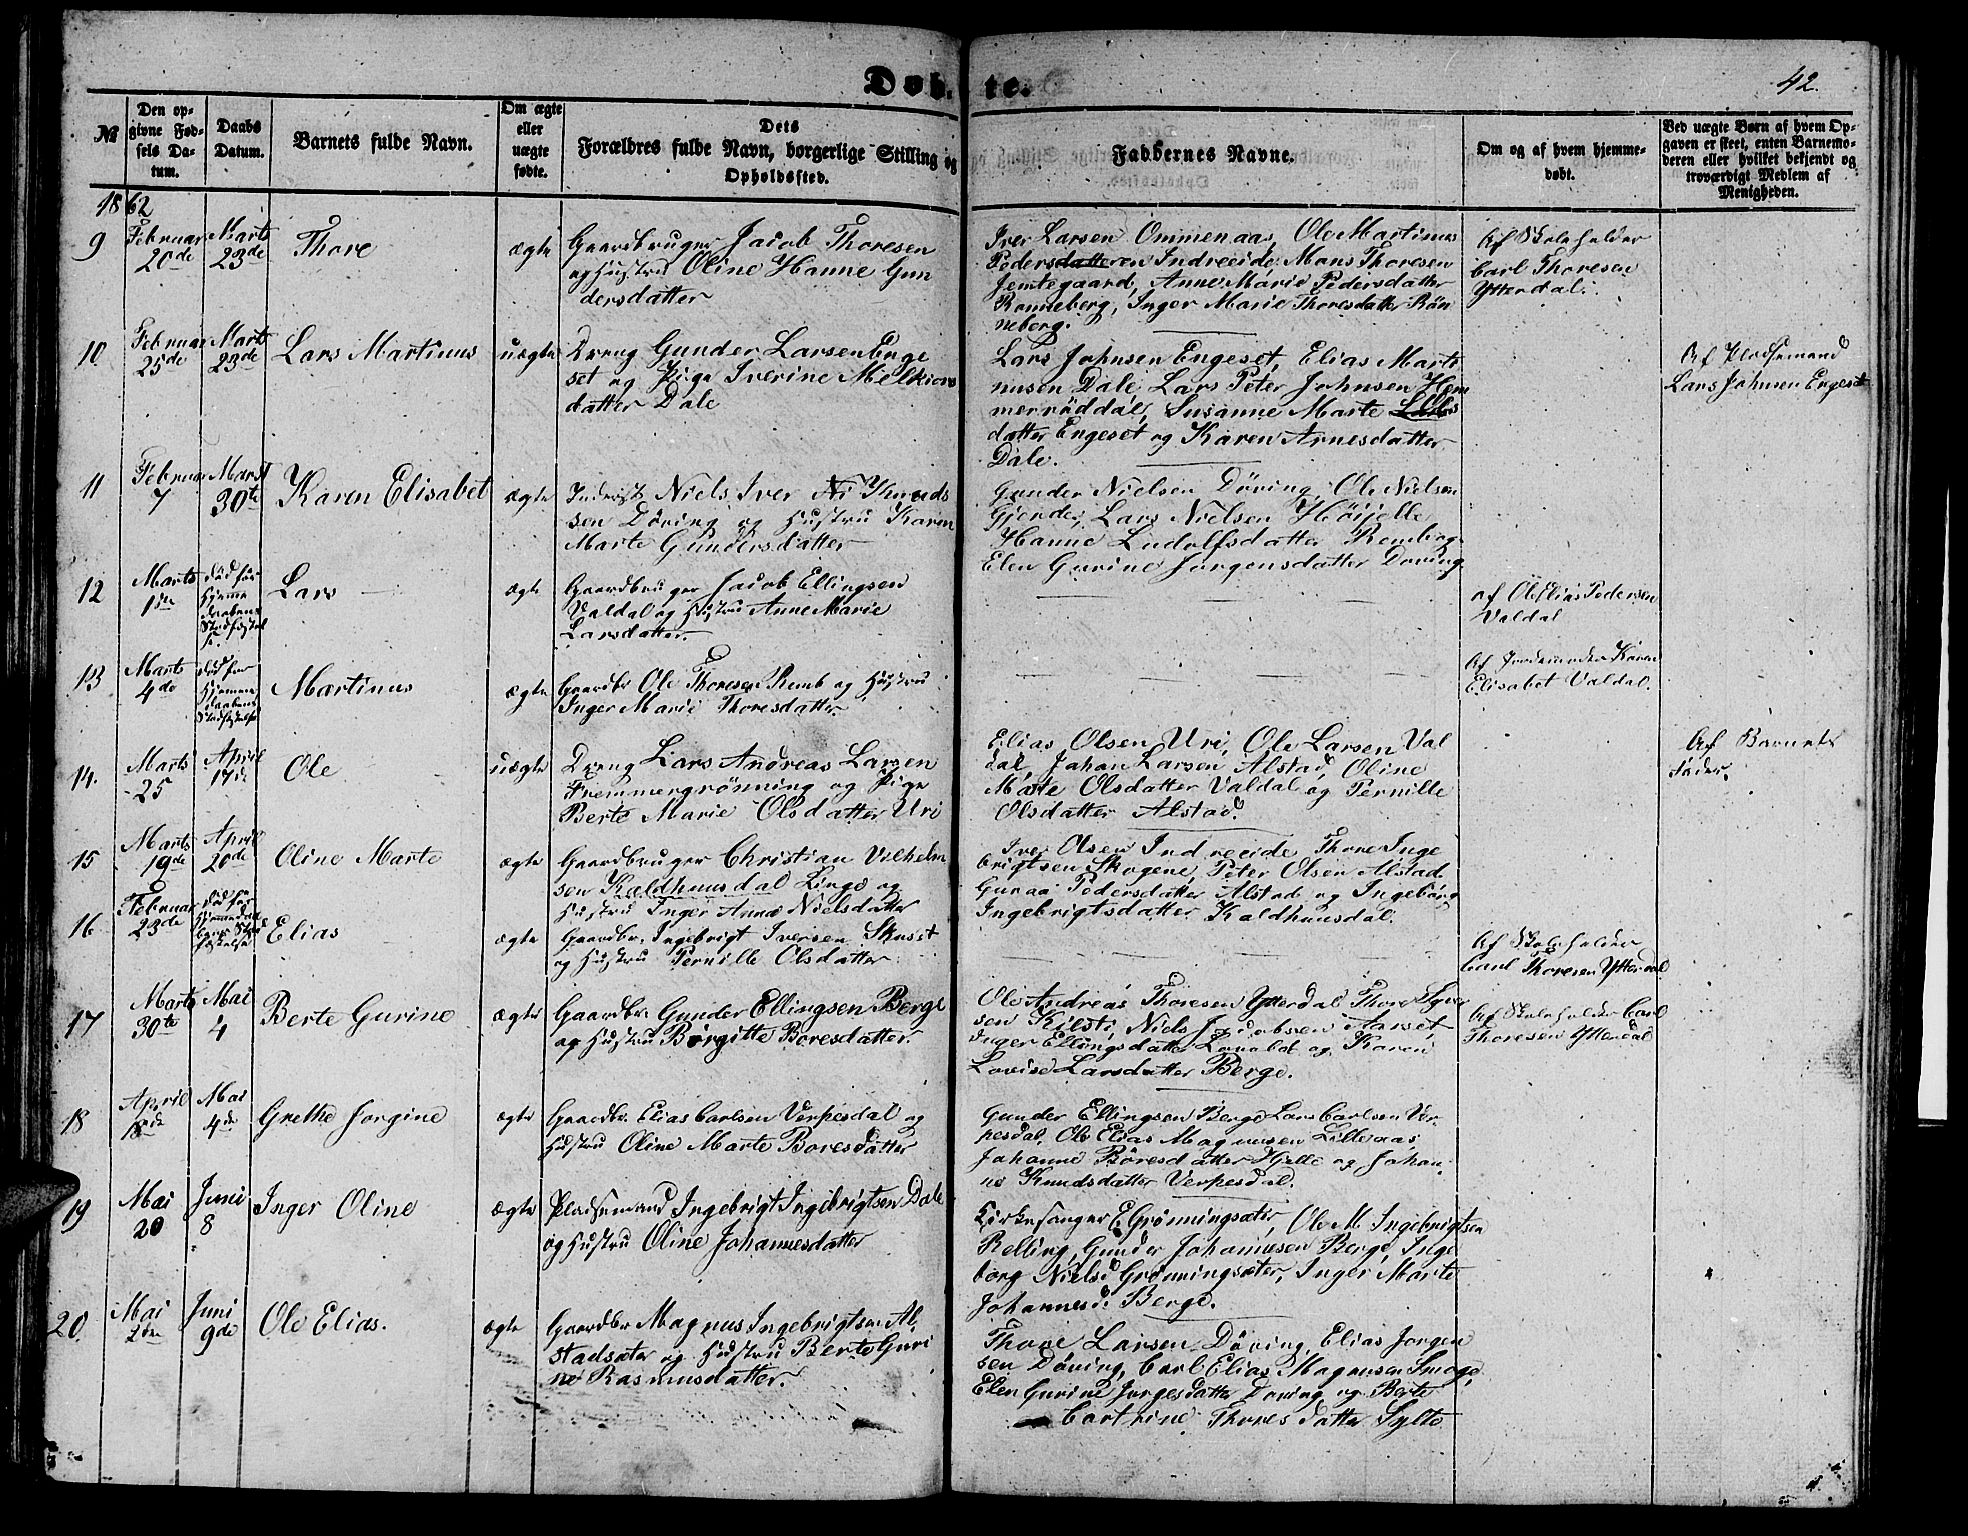 Døbte.
42.
№
Den opgivne Fødsels Datum.
Daabs Datum.
Barnets fulde Navn.
Om ægte eller uægte fødte.
Dets Forældres fulde Navn, borgerlige Stilling og Opholdssted.
Faddernes Navne.
Om og af hvem hjemmedøbt.
Ved uægte Børn af hvem Opgaven er skeet, enten Barnemoderen eller hvilket bekjendt og troværdigt Medlem af Menigheden.
1862
9
Februar 20de
Marts 23de
Thore
ægte
Gaardbruger Jacob Thoresen
og Hustru Oline Hanne Gun
dersdatter
Iver Larsen Ommenaas, Ole Martinus
Pedersdatteren Indreeide, Mons Thoresen
Jemtegaard, Anne Marie Pedersdatter
Rønneberg, Inger Marie Thoresdatter Røn
neberg.
Af Skoleholder
Carl Thoresen
Ytterdal.
10.
Februar 25de
Marts 23de
Lars Martinus
uægte
Dreng Gunder Larsen Enge
set og Pige Iverine Melkiors
datter Dale
Lars Johnsen Engeset, Elias Marti
nusen Dale, Lars Peter Johnsen Hem
merraaddal, Susanne Marte Lars
datter Engeset og Karen Arnesdatter
Dale.
Af Pladsemand
Lars Johnsen Engeset
11
Februar 7
Marst 30te
Karen Elisabet
ægte
Inderist Niels Iver Ni Knuds
sen Døving og Hustru Karen
Marte Gundersdatter
Gunder Nielsen Døving, Ole Nielsen
Gjerde, Lars Nielsen Høijelle
Hanne Ludolfsdatter Remb og
Elen Gurine Jørgensdatter Døving
12
Marts 1ste
død før
Hjemme
daabens
Stadfæstel
se
Lars
ægte
Gaardbruger Jacob Ellingsen
Valdal og Hustru Anne Marie
Larsdatter.
af Ole Elias Pedersen
Valdal
13
Marts 4de
død før
Hjemme
daabens
Stadfæstelse
Martinus
ægte
Gaardbr. Ole Thoresen Remb og Hustru
Inger Marie Thoresdatter.
Af Jordemoder Karen
Elisabet Valdal.
14.
Marts 25
April 17de
Ole
uægte
Dreng Lars Andreas Larsen
Fremmergrønning og Pige
Berte Marie Olsdatter Uri
Elias Olsen Uri, Ole Larsen Val
dal, Johan Larsen Alstad, Oline
Marte Olsdatter Valdal og Pernille
Olsdatter Alstad.
Af Barnets
Fader.
15
Marts 19de
April 20de
Oline Marte
ægte
Gaardbruger Christian Vilhelm
sen Kaldhuusdal Linge og
Hustru Inger Anne Nielsdatter
Iver Olsen Indreeide, Thore Inge
brigtsen Skogene, Peter Olsen Alstad
Gunaa Pedersdatter Alstad og Ingeborg
Ingebrigtsdatter Kaldhuusdal.
16
Februar 23de
død før
Hjemmedaa
bens Stad
fæstelse
Elias
ægte
Gaardbr. Ingebrigt Iversen Skuset
og Hustru Pernille Olsdatter
Af Skoleholder
Carl Thoresen Ytterdal
17
Marts 30te
Mai 4
Berte Gurine
ægte
Gaardbr. Gunder Ellingsen Berge
og Hustru Børgitte Boresdatter.
Ole Andreas Thoresen Ytterdal, Thore Syver
sen Kilsti, Niels Jacobsen Aarset,
Inger Ellingsdatter Lovald og Karen
Lovise Larsdatter Berge.
Af Skoleholder Carl
Thoresen Ytterdal
18
April 18de
Mai 4de
Grethe Jorgine
ægte
Gaardbr. Elias Carlsen Verpesdal og
Hustru Oline Marte Boresdatter
Gunder Ellingsen Berge, Lars Carlsen Ver
pesdal, Ole Elias Magnusen Lilleaas
Johanne Børesdatter Hjelle og Johan
ne Knudsdatter Verpesdal.
19
Mai 20
Juni 8
Inger Oline
ægte
Pladsemand Ingebrigt Ingebrigtsen Dale
og Hustru Oline Johannesdatter
Kirkesanger E Grønningsæter, Ole M. Ingebrigtsen
Relling, Gunder Johannesen Berge, Inge
borg Nielsd Grønningsæter, Inger Marte
Johannesd. Berge.
20.
Mai 2den
Juni 9de
Ole Elias.
ægte
Gaardbr Magnus Ingebrigtsen Al
stadsæter og Hustru Berte Guri
ne Rasmusdatter.
Thore Larsen Døving, Elias Jorgen
sen Døving, Carl Elias Magnusen Smoge,
Elen Gurine Jorgesdatter Døving og Berte
Cathrine Thoresdatter Sylte